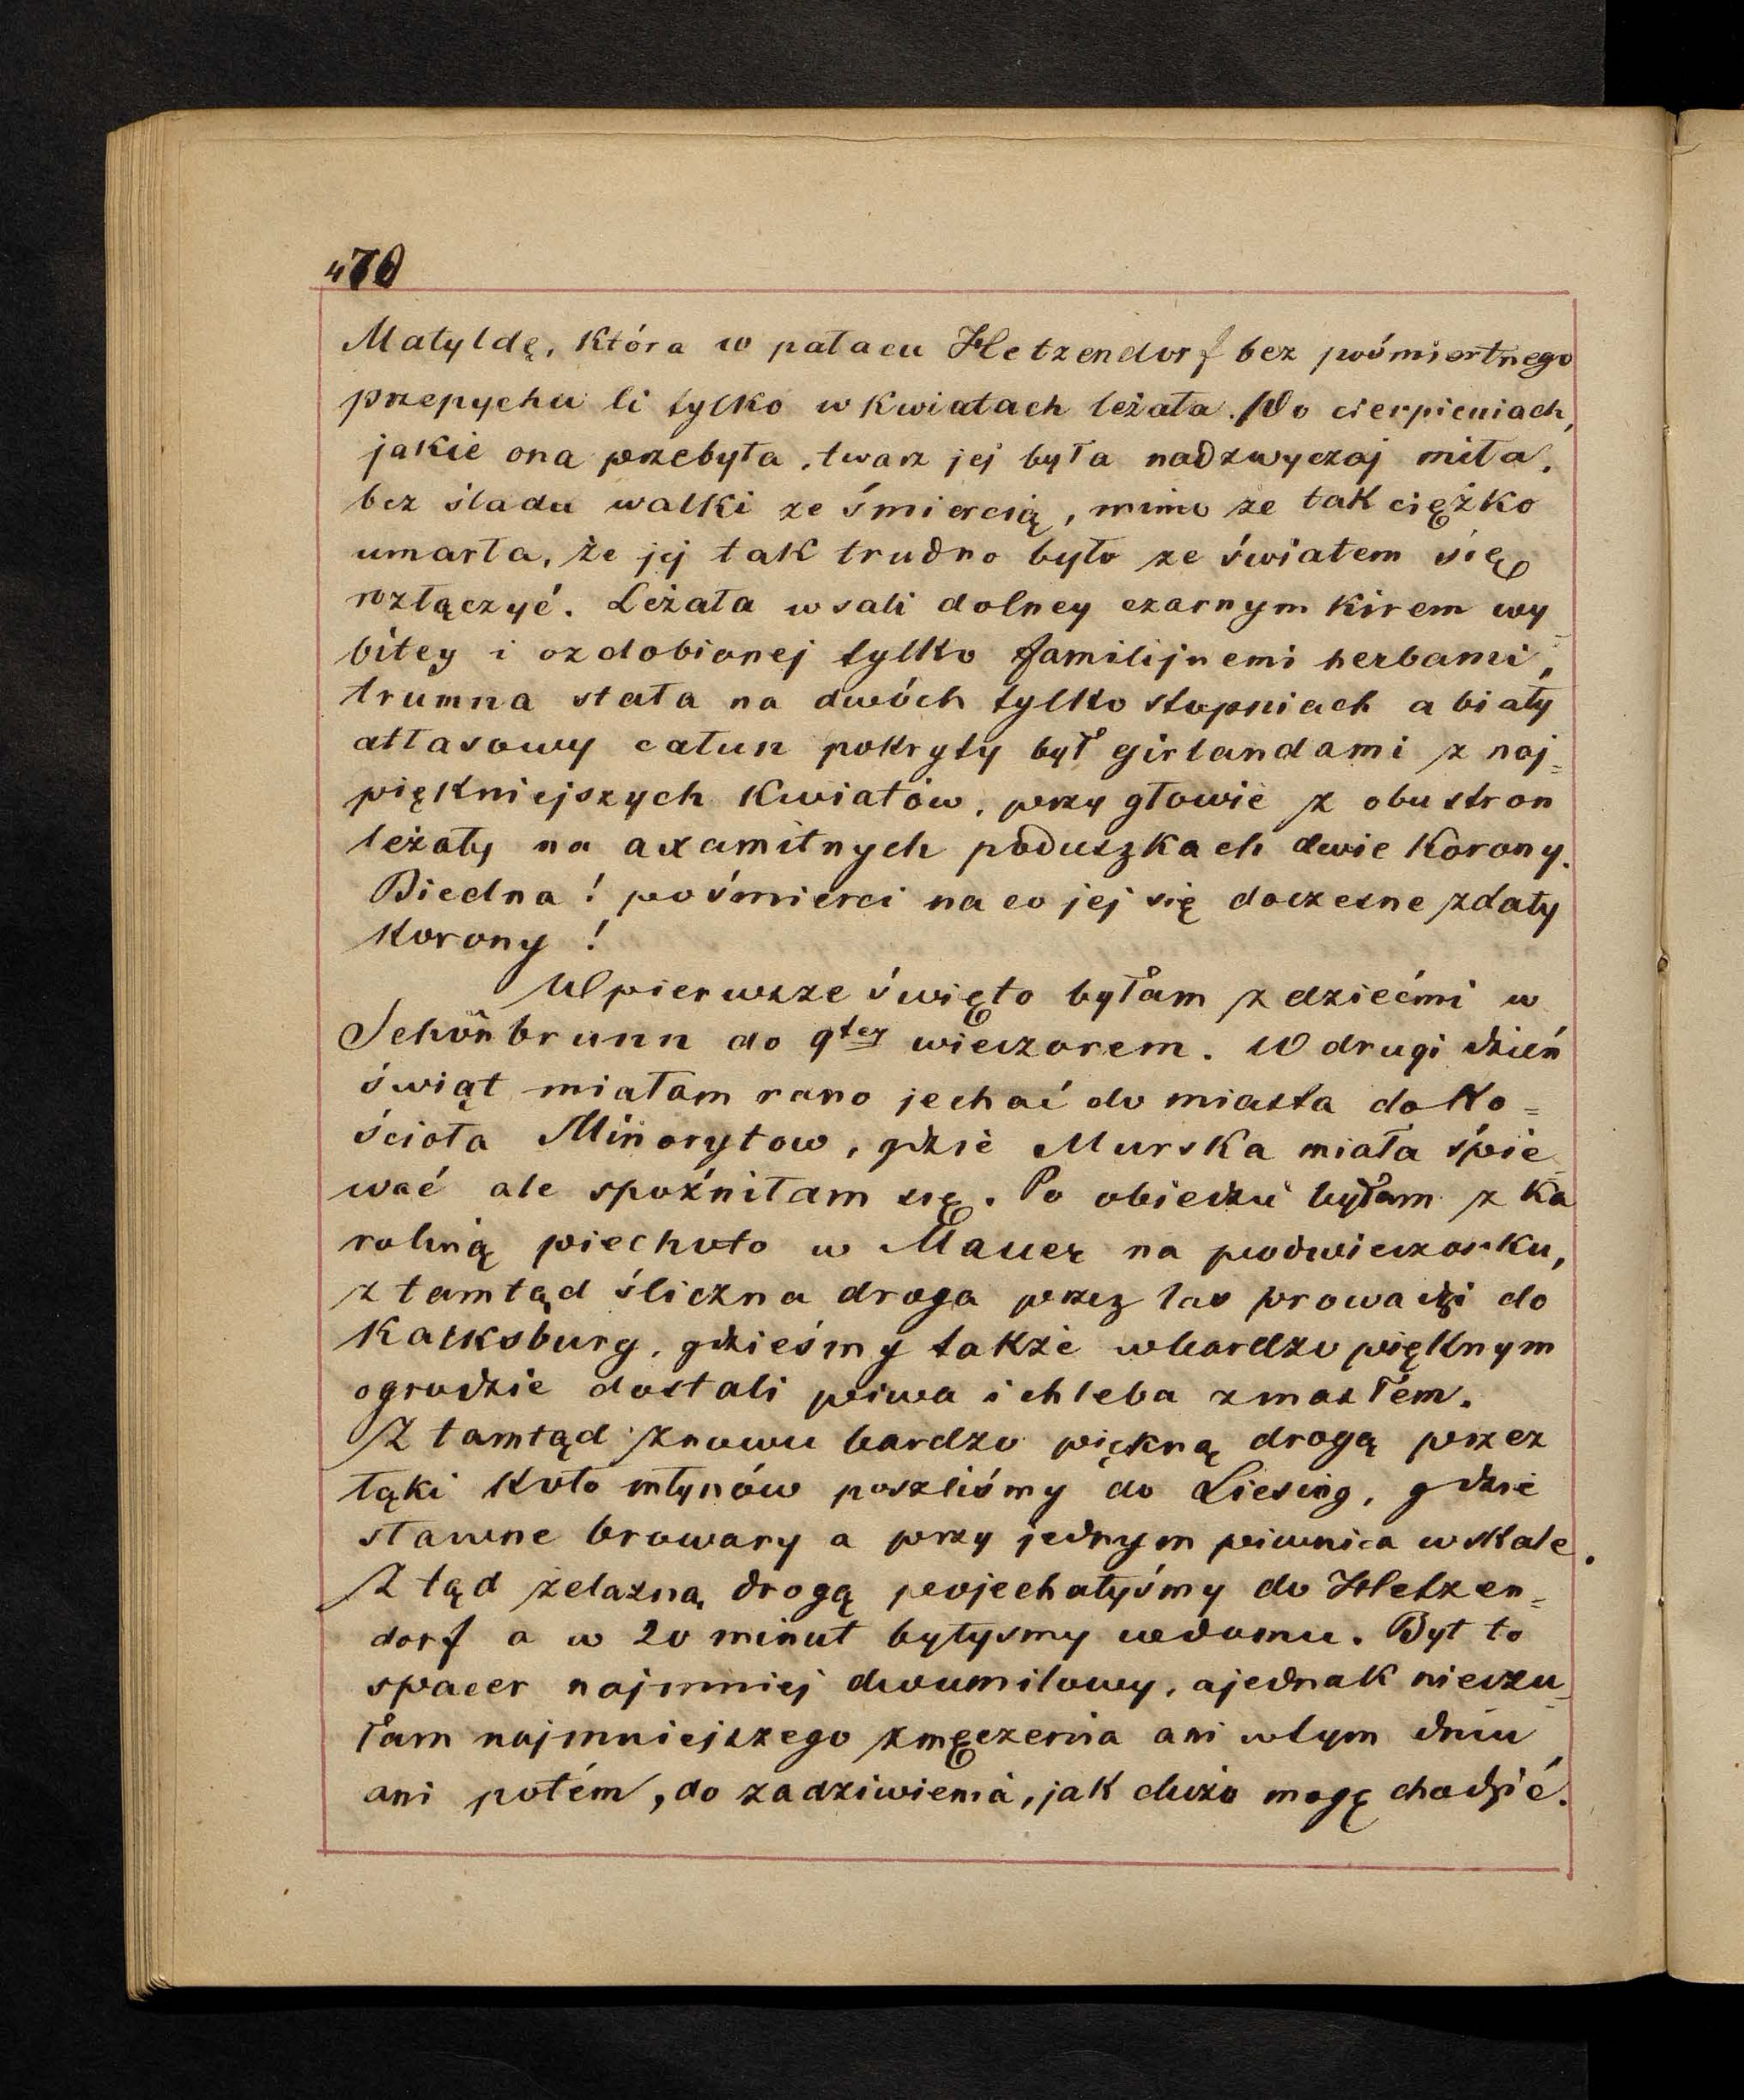 470
Matyldę, która w pałacu Hetzendorf bez pośmiertnego
przepychu li tylko w kwiatach leżała. Po cierpieniach,
jakie ona przebyła, twarz jej była nadzwyczaj miła,
bez śladu walki ze śmiercią, mimo że tak ciężko
umarła, że jej tak trudno było ze światem się
rozłączyć. Leżała w sali dolney czarnym kirem wy-
bitey i ozdobionej tylko familijnemi herbami,
trumna stała na dwóch tylko stopniach a biały
atłasowy całun pokryty był girlandami z naj=
piękniejszych kwiatów, przy głowie z obu stron
leżały na axamitnych poduszkach dwie korony.
Biedna! po śmierci na co jej się doczesne zdały
korony!
W pierwsze święto byłam z dziećmi w
Schönbrunn do 9tey wieczorem. W drugi dzień
świąt miałam rano jechać do miasta do Ko=
ścioła Minorytow, gdzie Murska miała śpie-
wać ale spoźniłam się. Po obiedzu byłam z Ka
roliną piechoto w Mauer na podwieczorku,
z tamtąd śliczna droga przez las prowadzi do
Kalksburg, gdzieśmy także w bardzo pięknym
ogrodzie dostali piwa i chleba z masłem.
Z tamtąd znowu bardzo piękną drogą przez
łąki koło młynów poszliśmy do Liesing, gdzie
sławne browary a przy jednym piwnica w skale.
Z tąd żelazną drogą pojechałyśmy do Hetzen=
dorf a w 20 minut byłysmy w domu. Był to
spacer najmniej dwumilowy, a jednak nieczu-
łam najmniejszego zmęczenia ani w tym dniu
ani potém, do zadziwienia, jak dużo mogę chodzić.